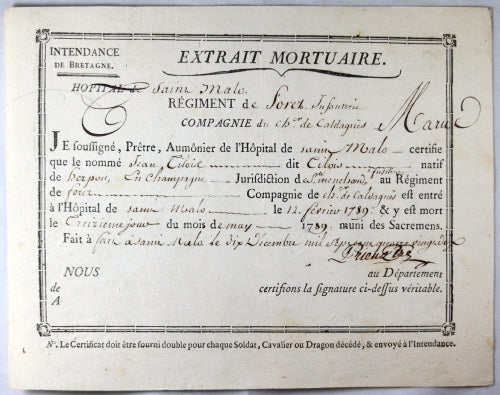 INTENDANCE
DE BRETAGNE.
EXTRAIT MORTUAIRE.
HOPITAL de Saint Malo.
RÉGIMENT de Forez Infanterie
COMPAGNIE du chr. de Caldaguès
JE soussigné, Prêtre, Aumônier de l'Hôpital de saint Malo certifie
que le nommé Jean Cilois dit Cilois natif
de herpon, En Champagne Jurisdiction de fusilier au Régiment
de forez Compagnie de chr. de Caldaguès est entré
à l'Hôpital de saint Malo le 12. fevrier 1789. & y est mort
le treizieme jour du mois de may 1789. muni des Sacremens.
Fait à saint Malo le dix Decembre mil sept cent quatre vingt
NOUS au Département
de certifions la signature ci-dessus véritable.
A
Nª. Le Certificat doit être fourni double pour chaque Soldat, Cavalier ou Dragon décédé, & envoyé à l'Intendance.